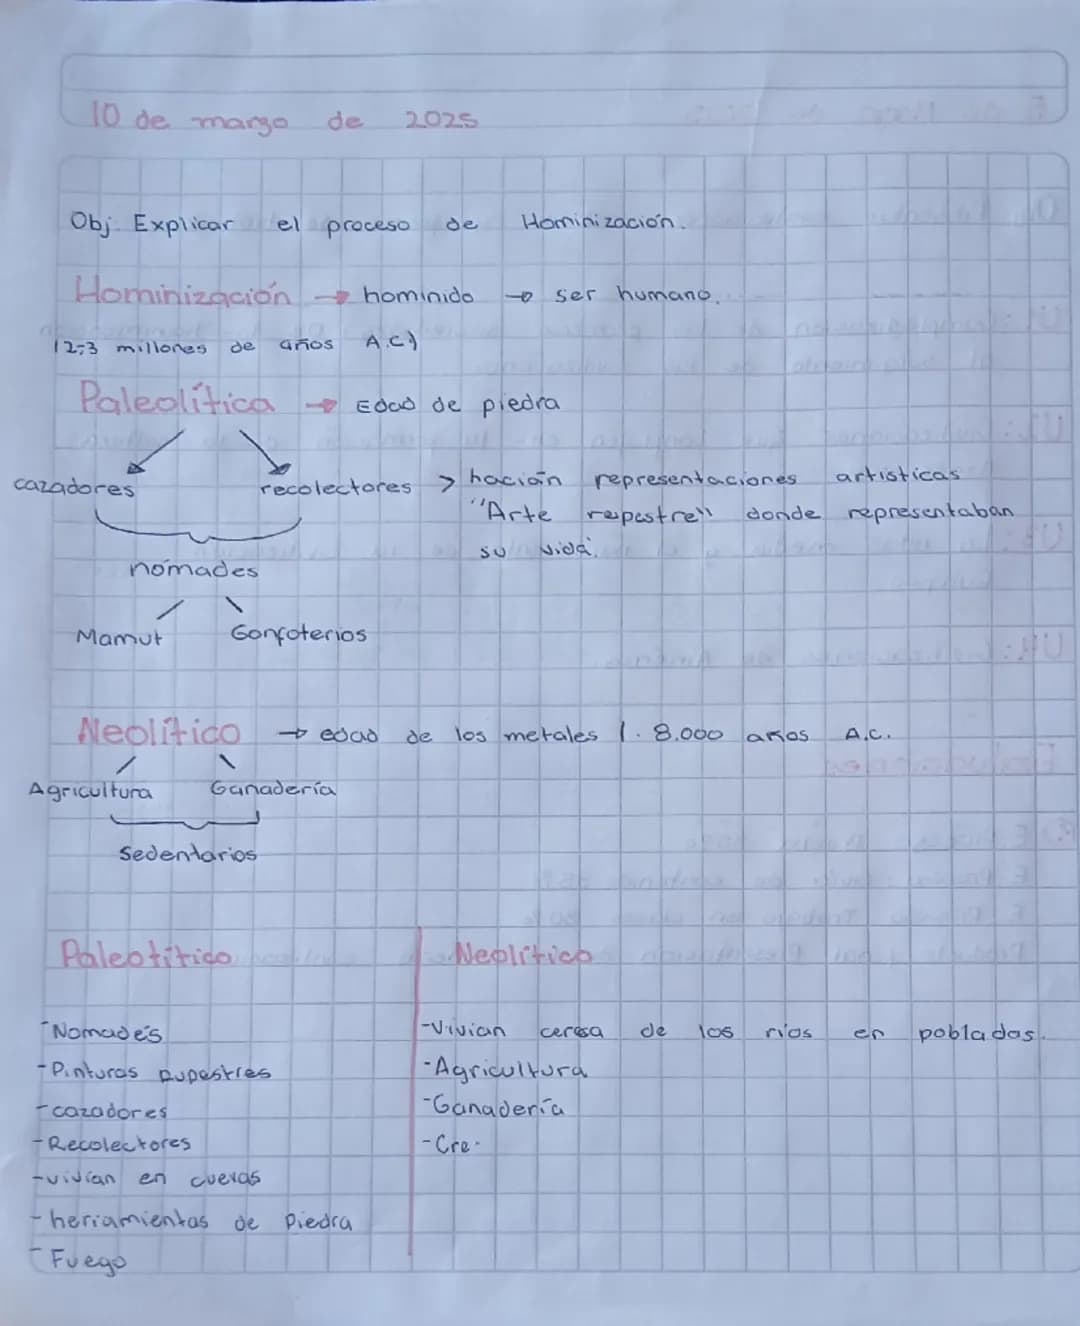 10 de marzo de 2025
Obj. Explicar el proceso de Hominización.
Hominización → hominido → ser humano.
(2-3 millones de años A.C)
Paleolítica → Edad de piedra
cazadores recolectores > hación representaciones artisticas
"Arte respestre" donde representaban
su vida.
nómades
Mamut Gonfoterios
Neolítico → edad de los metales 1. 8.000 años A.C.
Agricultura Ganadería
Sedentarios
Paleotítico Neolítico
-Nomades -Vivian cerca de los ríos en poblados.
-Pinturas Rupestres -Agricultura
-cazadores -Ganadería
-Recolectores -Cre.
-vivían en cuevas
-herramientas de Piedra
-Fuego